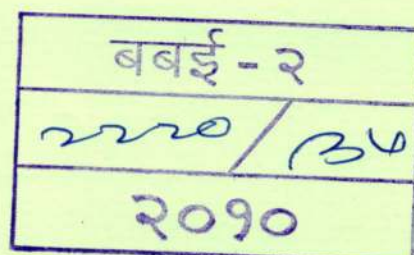 बबई - २
२२२० /
२०१०